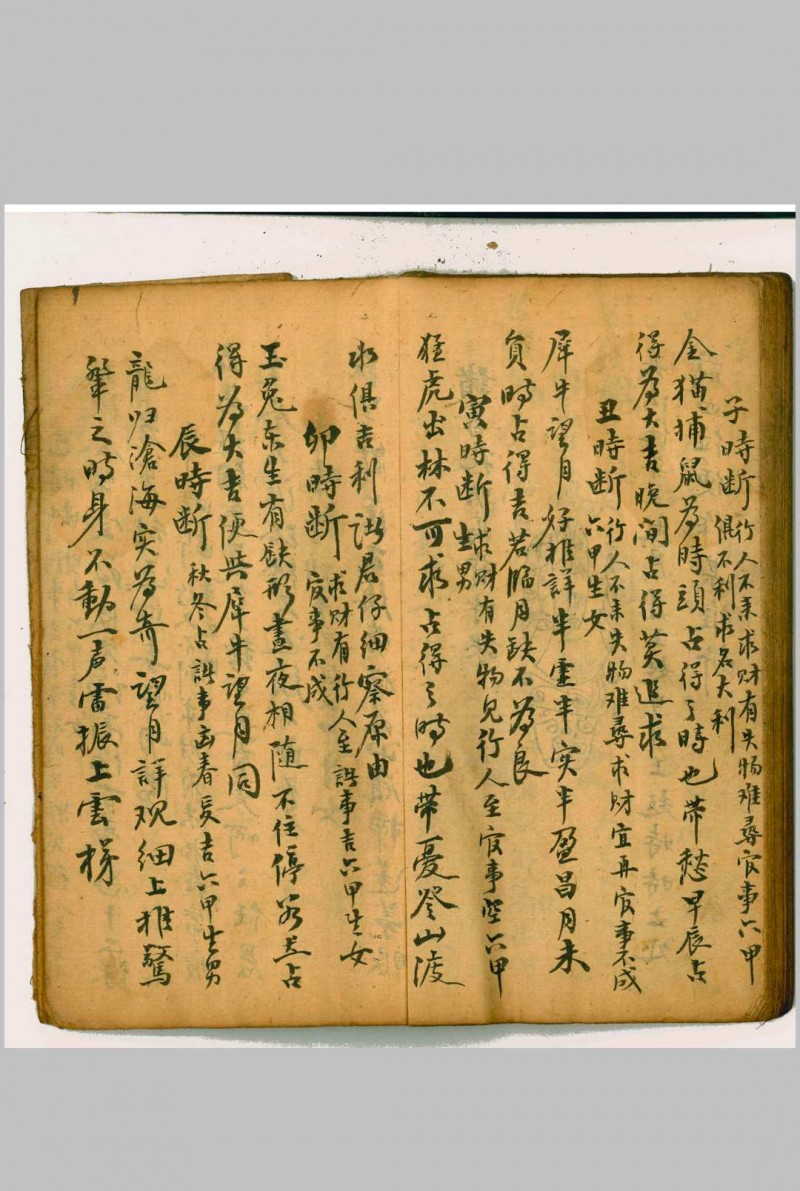 子時断 行人不来求财有失物难尋官事六甲
俱不利求名大利
金猫捕鼠為時頭占得之時也带愁早辰占
得為大吉晚间占得莫追求
丑時断 行人不来失物难尋求财宜再官事不成
六甲生女
犀牛望月好推詳半虚半实半盈昌月未
負時占得吉若臨月缺不為良
寅時断 求财有失物見行人至官事 六甲
生男
猛虎出林不可求占得之時也带憂登山渡
水俱吉利 君仔细察原由
卯時断 求财有行人至訟事吉六甲生女
官事不成
玉兔东生有缺形晝夜相随不住停若占
得為大吉便與犀牛望月同
辰時断 秋冬占訟事凶春夏吉六甲生男
龍归滄海实為奇望月詳观细上推驚
蛰之時身不動一声雷振上雲梯